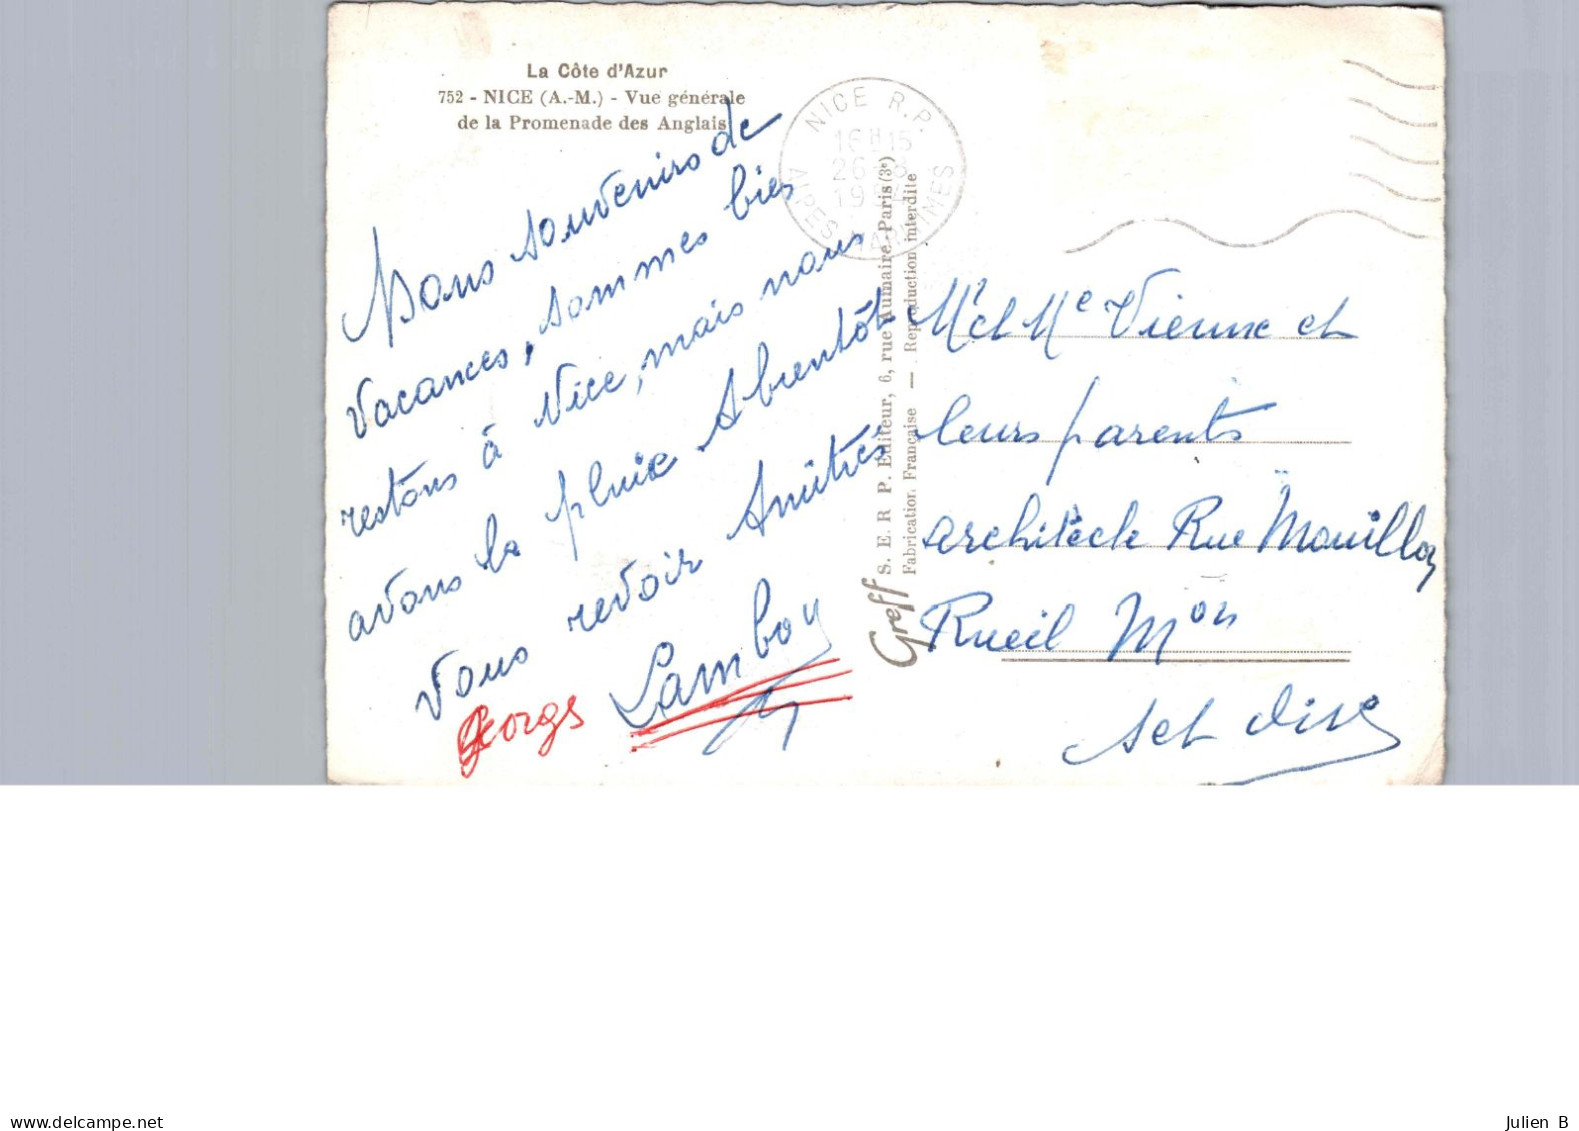 La Côte d'Azur
752 - NICE (A.-M.) - Vue générale
de la Promenade des Anglais
Bons souvenirs de
vacances, sommes bien
restons à Nice, mais nous
avons la pluie A bientôt
vous revoir Amitiés
Georgs Lamboy
NICE R.P.
16H15
26-8
19
ALPES MARITIMES
S. E. R P. Editeur, 6, rue Aumaire, Paris (3e)
Fabrication Française — Reproduction interdite
Greff
Mr et Me Vienne et
leurs parents
architecte Rue
Rueil Mon
Set Oise
www.delcampe.net
Julien B